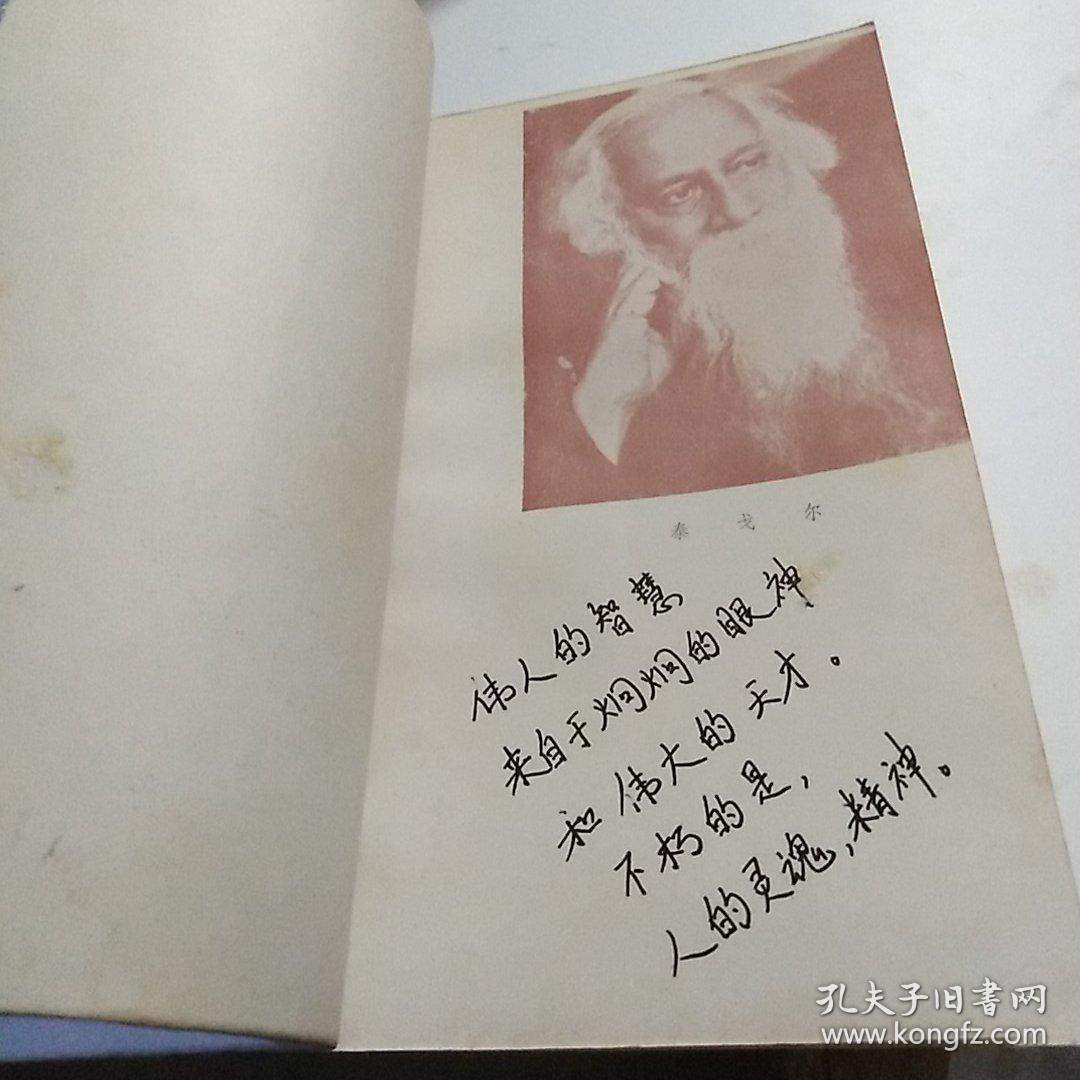 泰戈尔
伟人的智慧
来自于炯炯的眼神
和伟大的天才。
不朽的是,
人的灵魂,精神。
孔夫子旧書网
www.kongfz.com